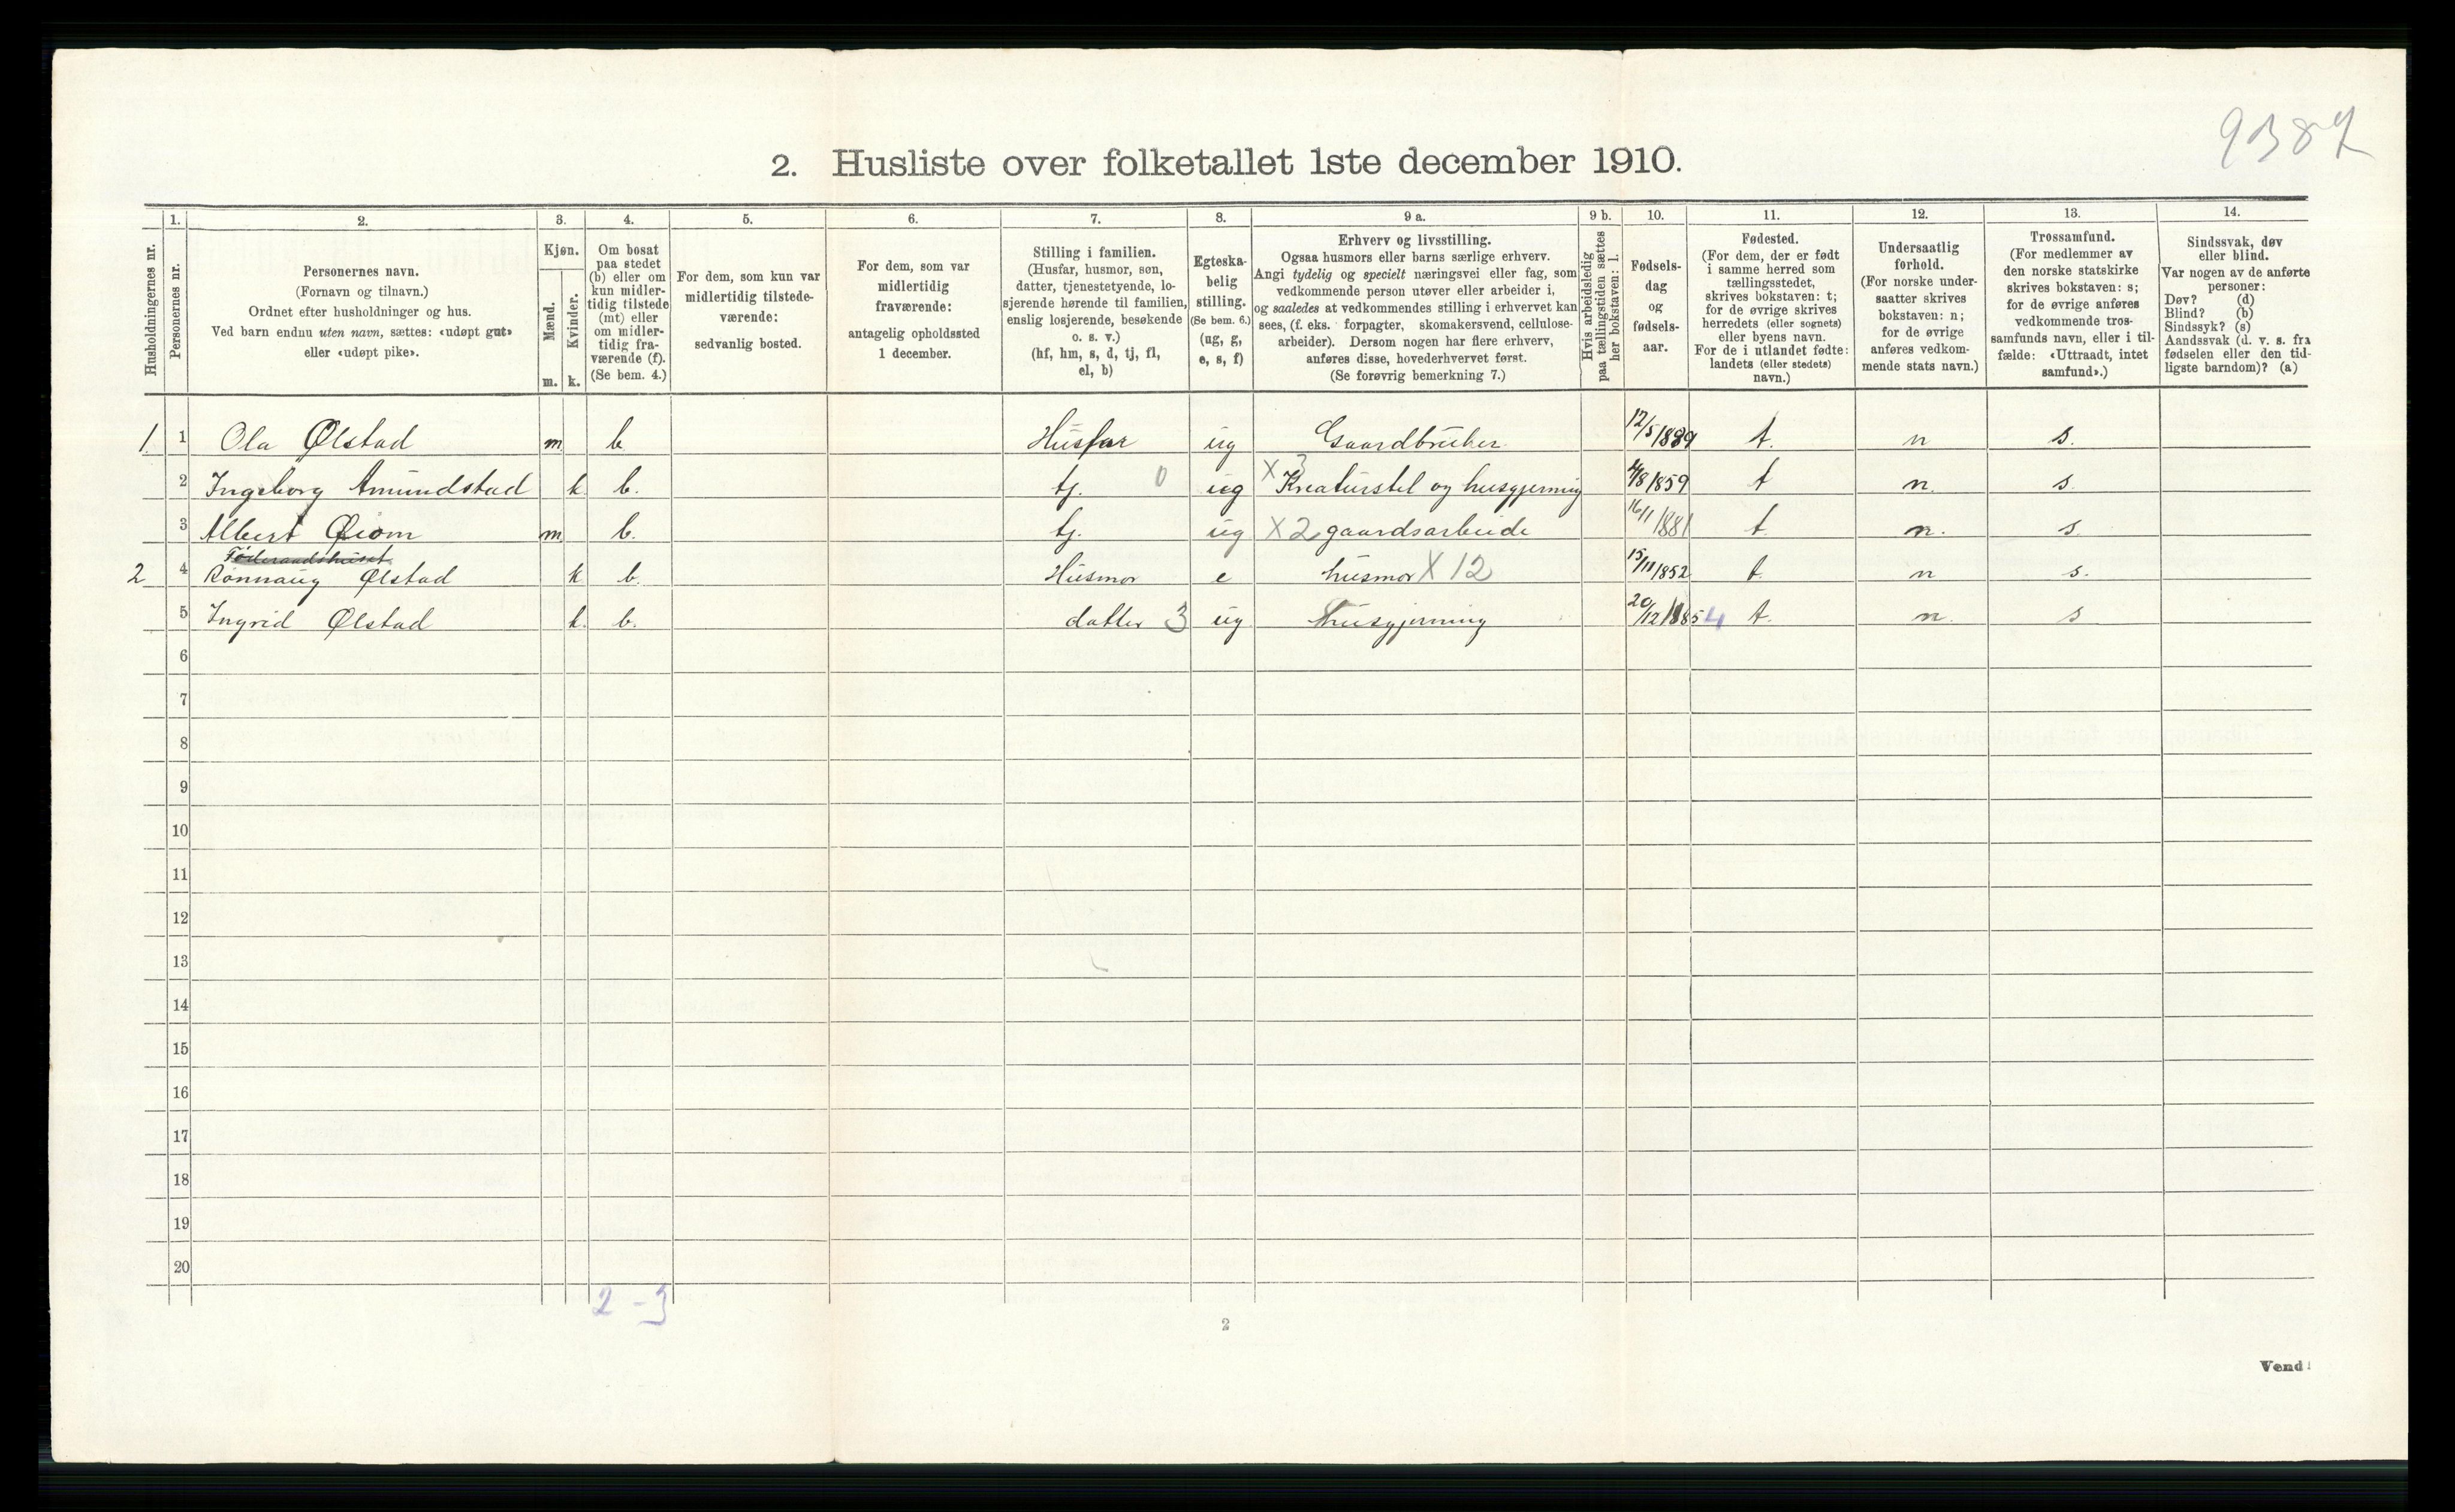 9387
2. Husliste over folketallet 1ste december 1910.
Husholdningernes nr.
1. Personernes nr.
2. Personernes navn. (Fornavn og tilnavn.) Ordnet efter husholdninger og hus. Ved barn endnu uten navn, sættes: «udøpt gut» eller «udøpt pike».
3. Kjøn. Mænd. m. Kvinder. k.
4. Om bosat paa stedet (b) eller om kun midlertidig tilstede (mt) eller om midlertidig fraværende (f). (Se bem. 4.)
5. For dem, som kun var midlertidig tilstedeværende: sedvanlig bosted.
6. For dem, som var midlertidig fraværende: antagelig opholdssted 1 december.
7. Stilling i familien. (Husfar, husmor, søn, datter, tjenestetyende, losjerende hørende til familien, enslig losjerende, besøkende o. s. v.) (hf, hm, s, d, tj, fl, el, b)
8. Egteskabelig stilling. (Se bem. 6.) (ug, g, e, s, f)
9 a. Erhverv og livsstilling. Ogsaa husmors eller barns særlige erhverv. Angi tydelig og specielt næringsvei eller fag, som vedkommende person utøver eller arbeider i, og saaledes at vedkommendes stilling i erhvervet kan sees, (f. eks. forpagter, skomakersvend, cellulosearbeider). Dersom nogen har flere erhverv, anføres disse, hovederhvervet først. (Se forøvrig bemerkning 7.)
9 b. Hvis arbeidsledig paa tællingstiden sættes her bokstaven: l.
10. Fødselsdag og fødselsaar.
11. Fødested. (For dem, der er født i samme herred som tællingsstedet, skrives bokstaven: t; for de øvrige skrives herredets (eller sognets) eller byens navn. For de i utlandet fødte: landets (eller stedets) navn.)
12. Undersaatlig forhold. (For norske undersaatter skrives bokstaven: n; for de øvrige anføres vedkommende stats navn.)
13. Trossamfund. (For medlemmer av den norske statskirke skrives bokstaven: s; for de øvrige anføres vedkommende trossamfunds navn, eller i tilfælde: «Uttraadt, intet samfund».)
14. Sindssvak, døv eller blind. Var nogen av de anførte personer: Døv? (d) Blind? (b) Sindssyk? (s) Aandssvak (d. v. s. fra fødselen eller den tidligste barndom)? (a)
1. 1 Ola Ølstad m b Husfar ug Gaardbruker 12/5 1889 t. n s.
2 Ingeborg Amundstad k b. tj. 0 ug X 3 Kreaturstel og husgjerning 4/8 1859 t n. s.
3 Albert Øiom m b. tj. ug X 2 gaardsarbeide 16/11 1881 t. n. s.
Føderaadshuset
2 4 Rønnaug Ølstad k b. Husmor e husmor X 12 15/11 1852 t. n s.
5 Ingrid Ølstad k. b. datter 3 ug husgjerning 20/12 1885 4 t. n. s
6
7
8
9
10
11
12
13
14
15
16
17
18
19
20
2 - 3
2
Vend!